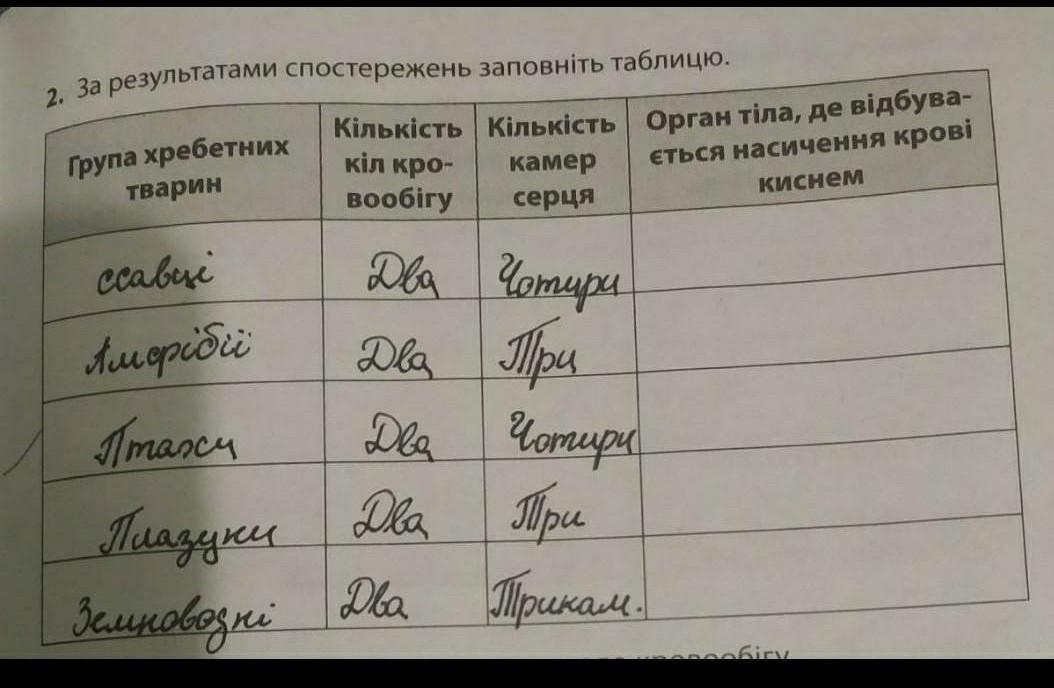 2. За результатами спостережень заповніть таблицю.
Група хребетних
тварин
Кількість
кіл кро-
вообігу
Кількість
камер
серця
Орган тіла, де відбува-
ється насичення крові
киснем
ссавці Два Чотири
Амфібії Два Три
Птахи Два Чотири
Плазуни Два Три
Земноводні Два Трикам.
кровообігу